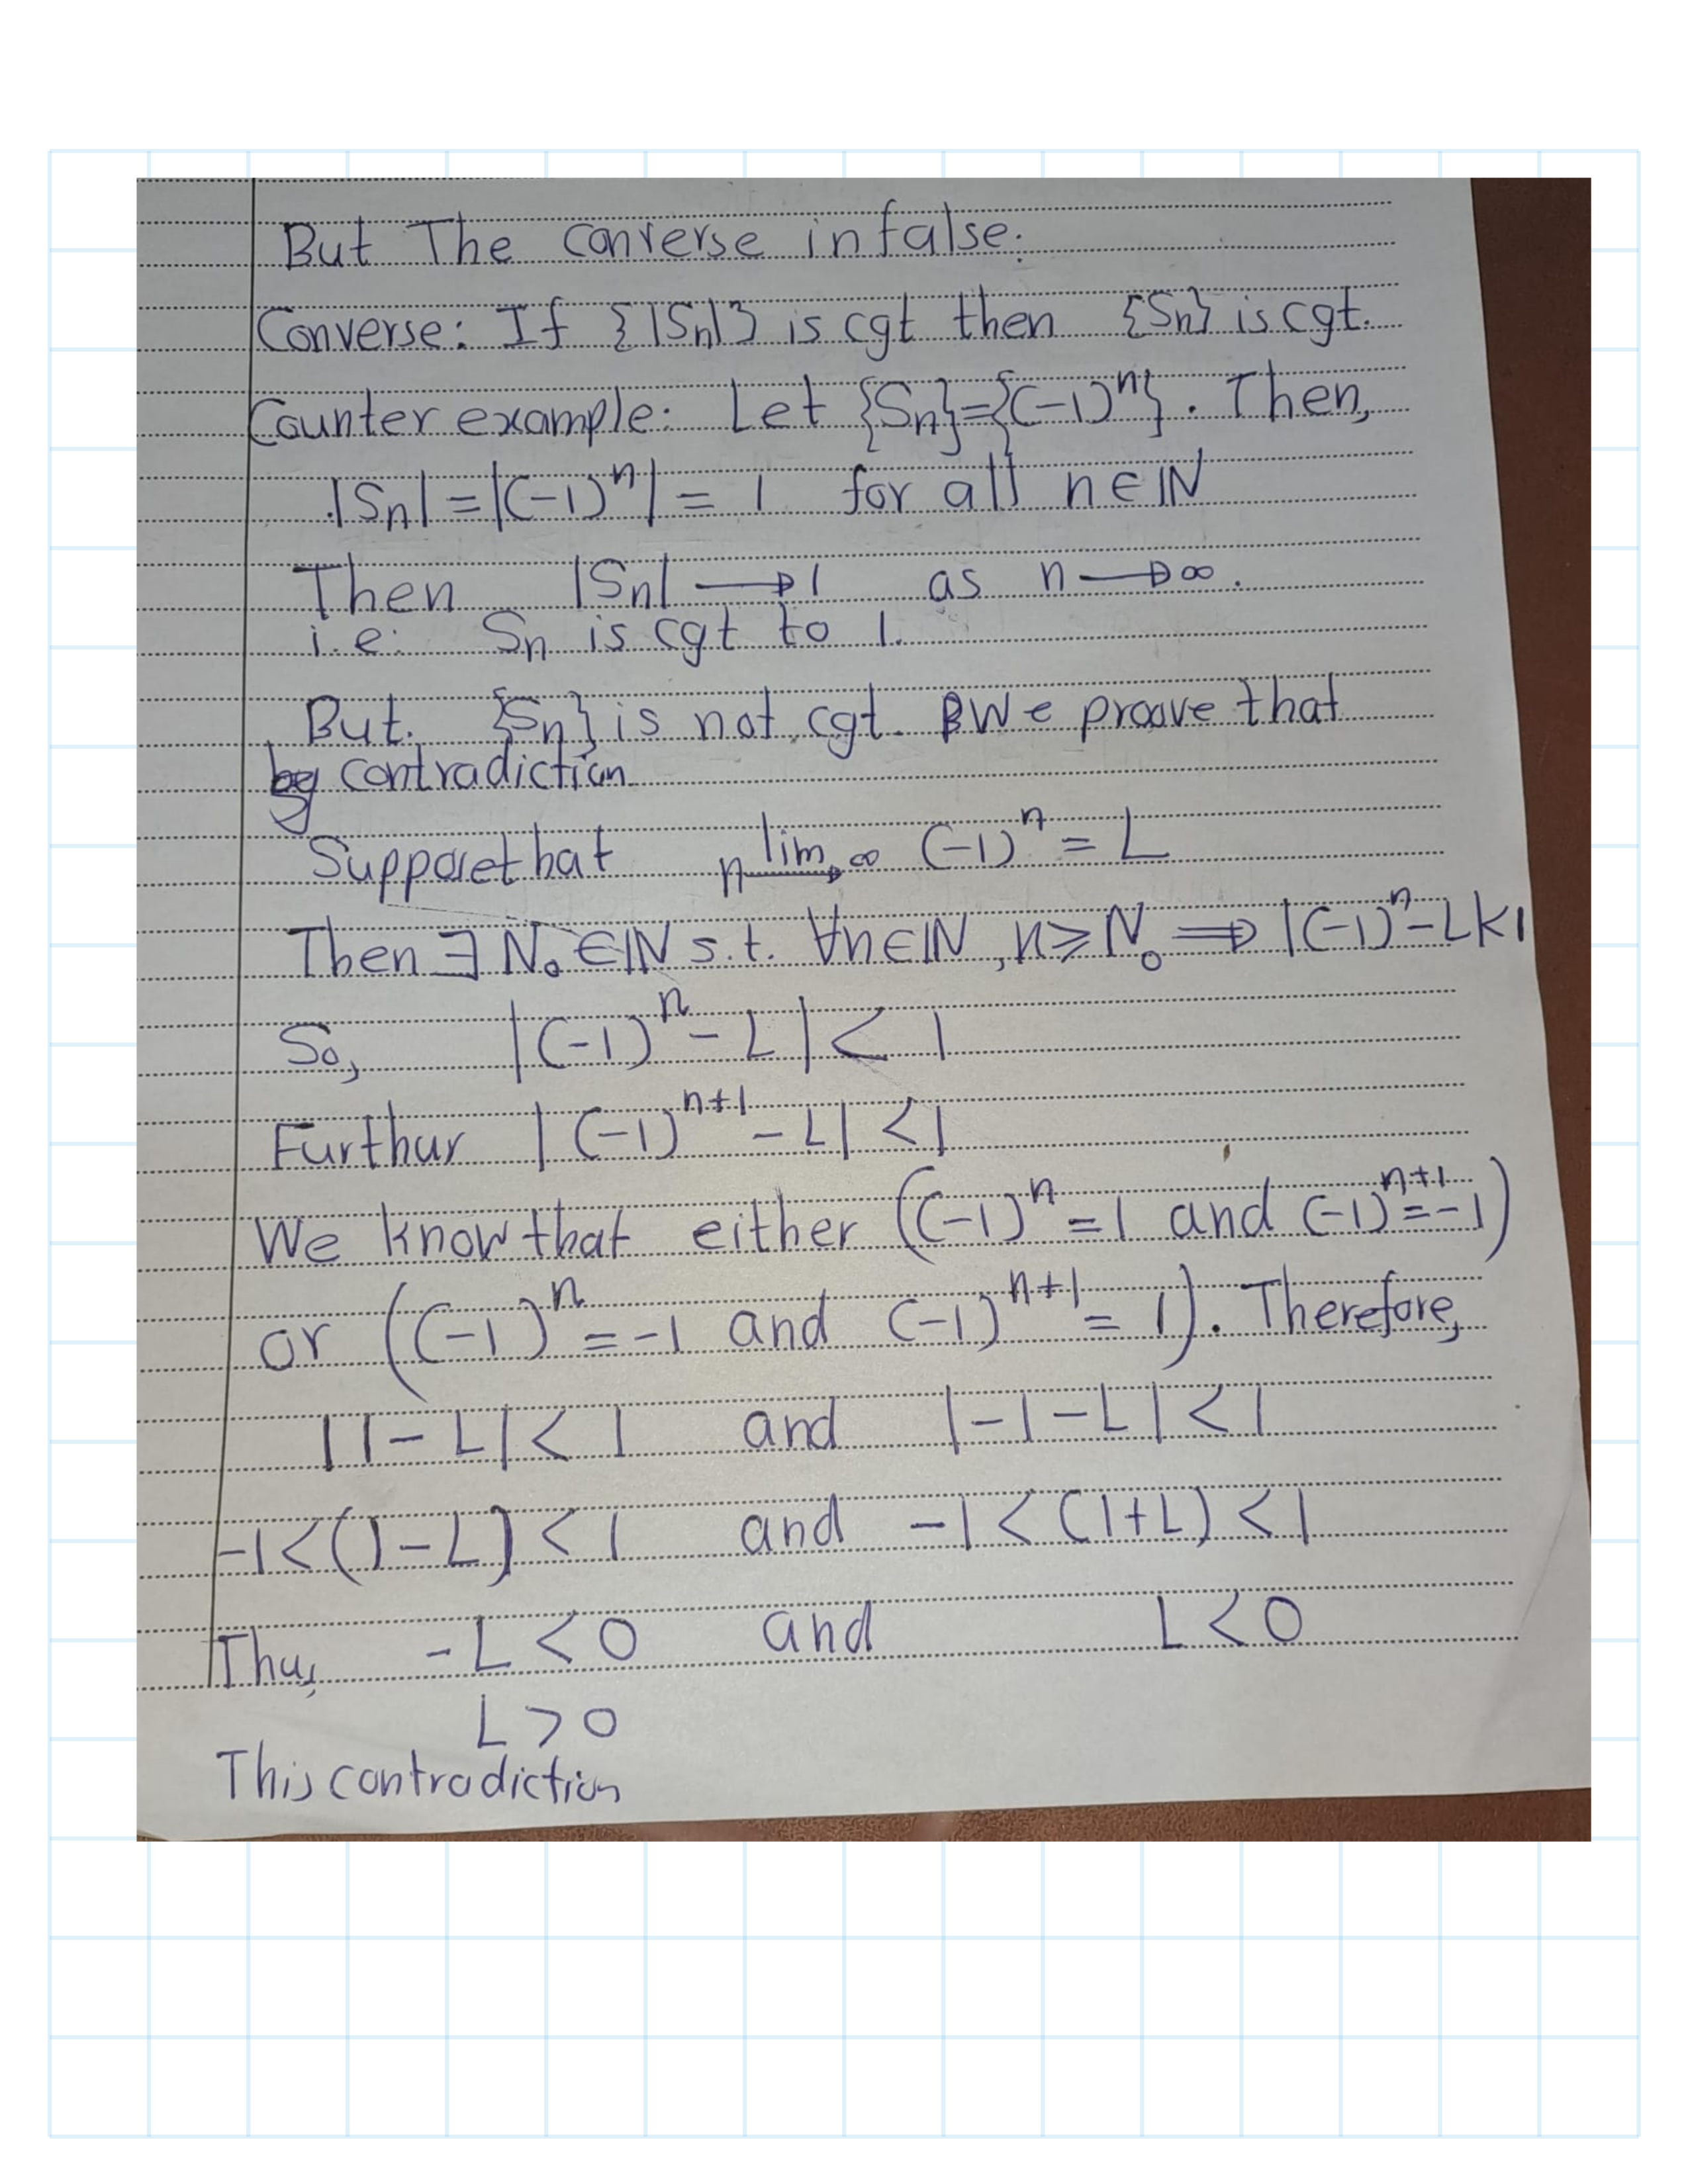 But The converse in false.
Converse: If {|Sn|} is cgt then {Sn} is cgt.
Counter example: Let {Sn}={(-1)^n}. Then,
|Sn| = |(-1)^n| = 1 for all n∈ℕ
Then |Sn| → 1 as n → ∞.
i.e: Sn is cgt to 1.
But. {Sn} is not cgt. We proove that
by contradiction
Suppose that lim n→∞ (-1)^n = L
Then ∃ N₀ ∈ ℕ s.t. ∀n∈ℕ, n ≥ N₀ ⇒ |(-1)^n - L| < 1
So, |(-1)^n - L| < 1
Furthur |(-1)^{n+1} - L| < 1
We know that either ((-1)^n = 1 and (-1)^{n+1} = -1)
or ((-1)^n = -1 and (-1)^{n+1} = 1). Therefore,
|1 - L| < 1 and |-1 - L| < 1
-1 < (1 - L) < 1 and -1 < (1+L) < 1
Thus, -L < 0 and L < 0
L > 0
This contradiction